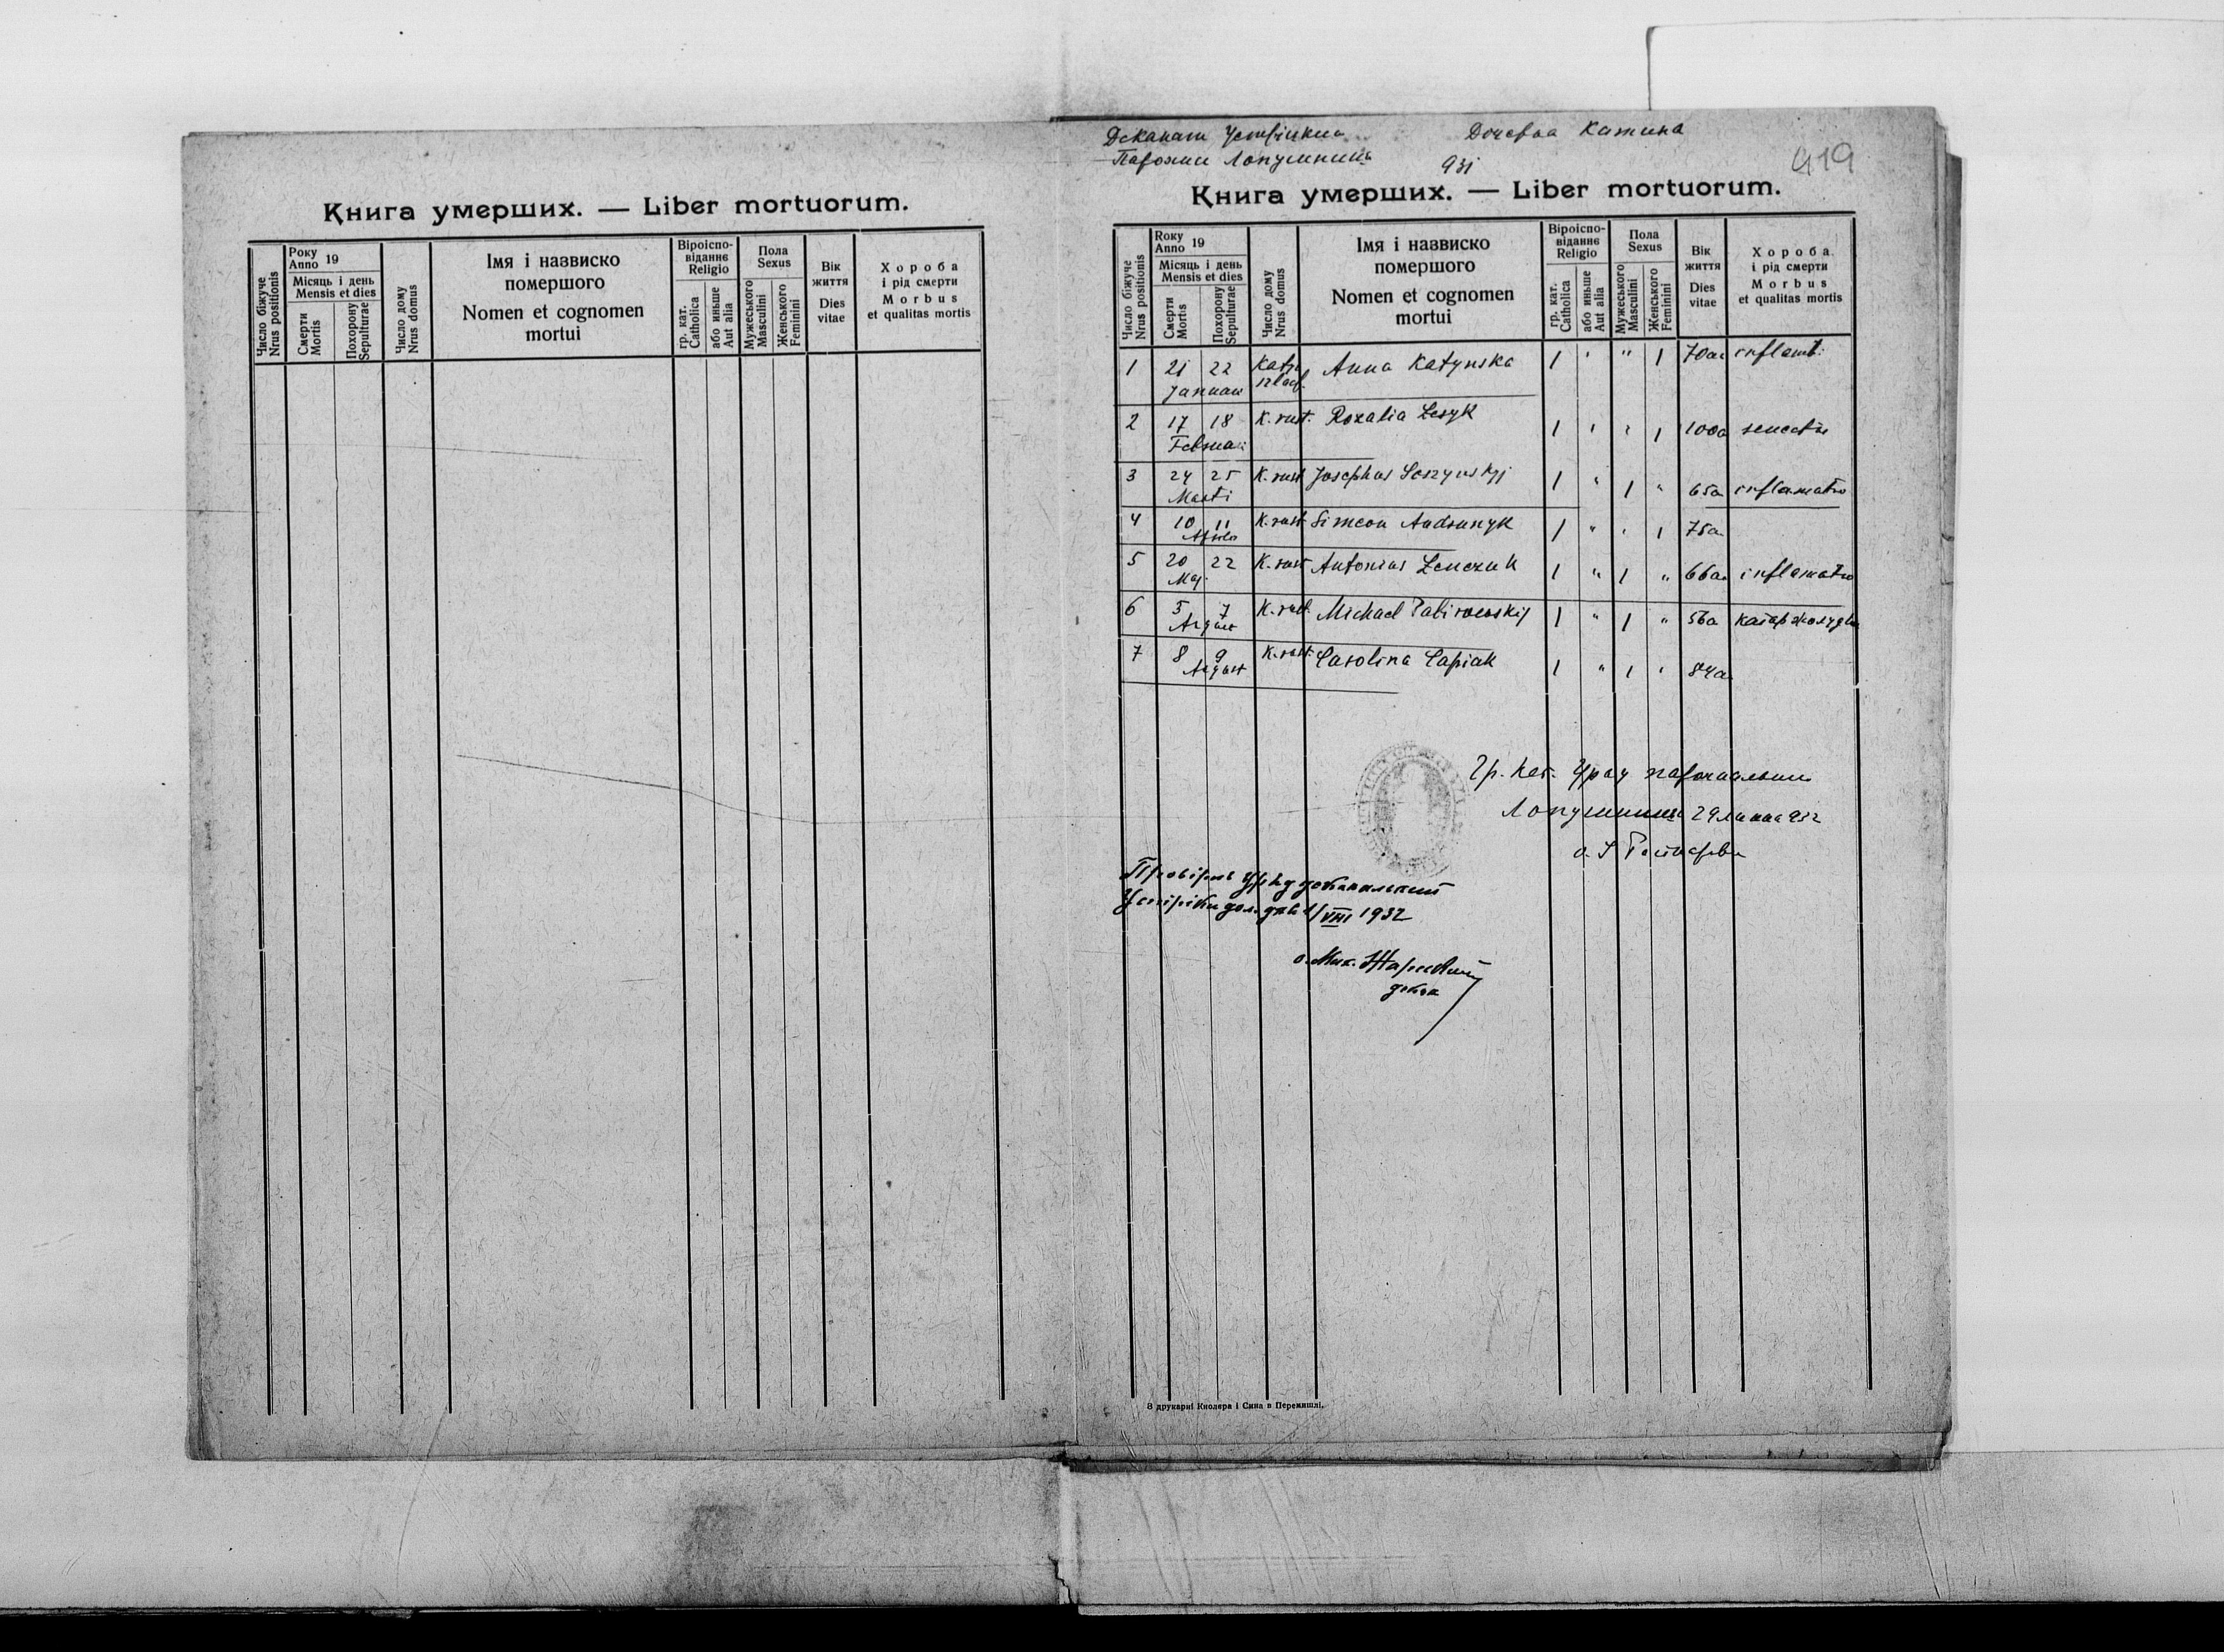 Книга умерших. — Liber mortuorum.
Число біжуче
Nrus positionis
Року
Anno 19
Місяць і день
Mensis et dies
Смерти
Mortis
Похорону
Sepulturae
Число дому
Nrus domus
Імя і назвиско
помершого
Nomen et cognomen
mortui
Віроіспо-
віданнє
Religio
гр. кат.
Catholica
або иньше
Aut alia
Пола
Sexus
Мужеського
Masculini
Женського
Feminini
Вік
життя
Dies
vitae
Хороба
і рід смерти
Morbus
et qualitas mortis
Деканат
Дочерна Катина
Парохии Лопушниця
931
419
Книга умерших. — Liber mortuorum.
Число біжуче
Nrus positionis
Року
Anno 19
Місяць і день
Mensis et dies
Смерти
Mortis
Похорону
Sepulturae
Число дому
Nrus domus
Імя і назвиско
помершого
Nomen et cognomen
mortui
Віроіспо-
віданнє
Religio
гр. кат.
Catholica
або иньше
Aut alia
Пола
Sexus
Мужеського
Masculini
Женського
Feminini
Вік
життя
Dies
vitae
Хороба
і рід смерти
Morbus
et qualitas mortis
1 21 22 Anna Katynska 1 " " 1 70a
2 17 18 K. rust. Rozalia Lesyk 1 " " 1 100a
3 24 25 K. rust Josephus 1 " 1 " 65a inflamatio
Marti
4 10 11 K. rust Simeon 1 " " 1 75a
5 20 22 K. rust Antonius 1 " 1 " 66a inflamatio
Maj
6 5 7 K. rust. Michael 1 " 1 " 56a
7 8 9 K. rust. Carolina Capiak 1 " 1 " 84a
Гр. кат. Уряд парохіяльний
29 липня 932
Провірив Уряд деканальний
VIII 1932
о. Мих.
декан
З друкарні Кнолера і Сина в Перемишлі.